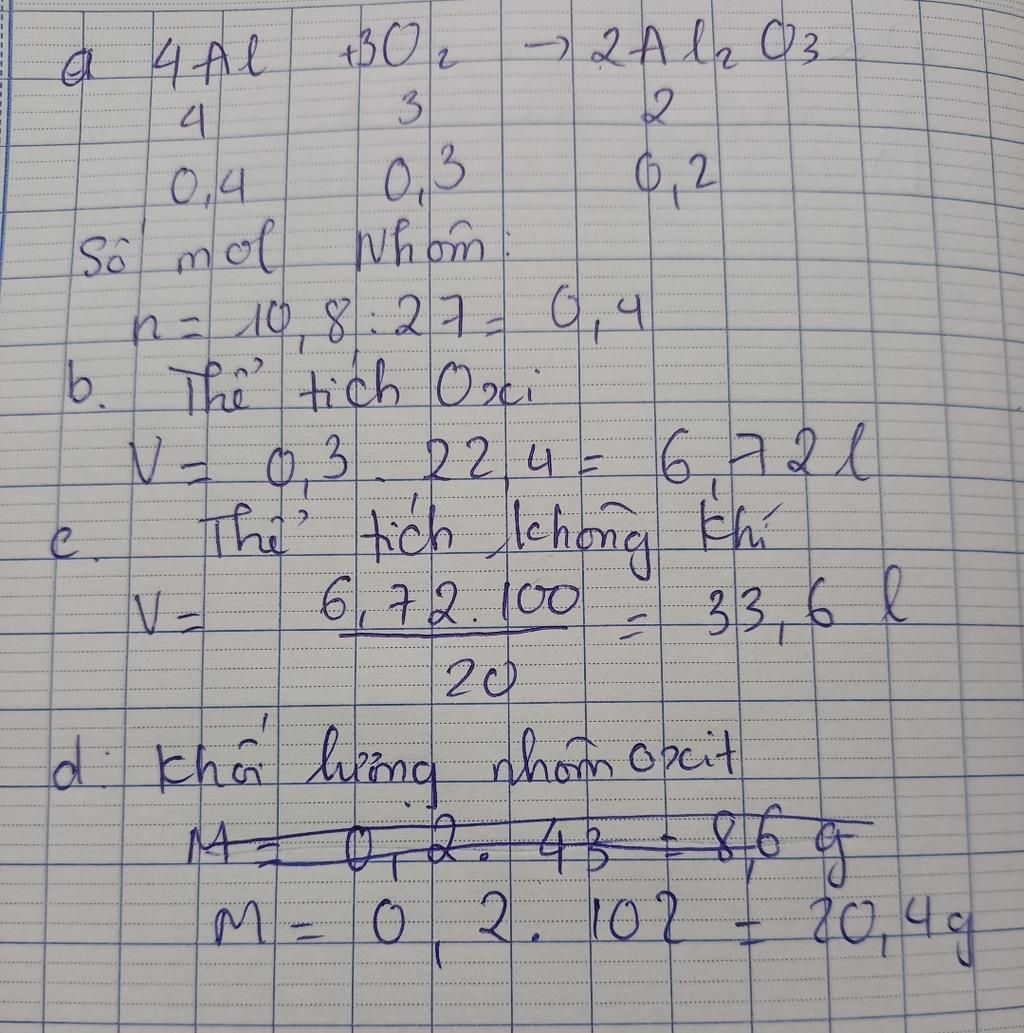 a 4Al +3O₂ → 2Al₂O₃
4 3 2
0,4 0,3 0,2
Số mol Nhôm:
n = 10,8 : 27 = 0,4
b. Thể tích Oxi
V = 0,3 . 22,4 = 6,72 l
c. Thể tích không khí
V = 6,72.100 = 33,6 l
20
d. Khối lượng nhôm oxit
M = 0,2. 43 = 8,6 g
M = 0,2. 102 = 20,4g